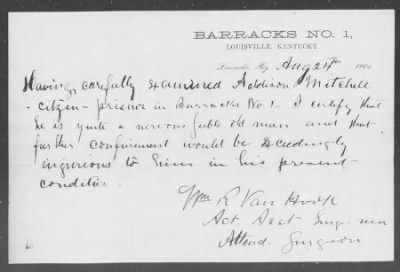 BARRACKS NO. 1,
LOUISVILLE, KENTUCKY.
Louisville, Ky, Aug 25th 1864
Having carefully examined Addison Mitchell
- citizen - prisoner in Barracks No 1. I certify that
he is quite a nervous feeble old man and that
further confinement would be exceedingly
injurious to him in his present
condition.
Wm R Van Hook
Act. Asst Surg. USA
Attend. Surgeon